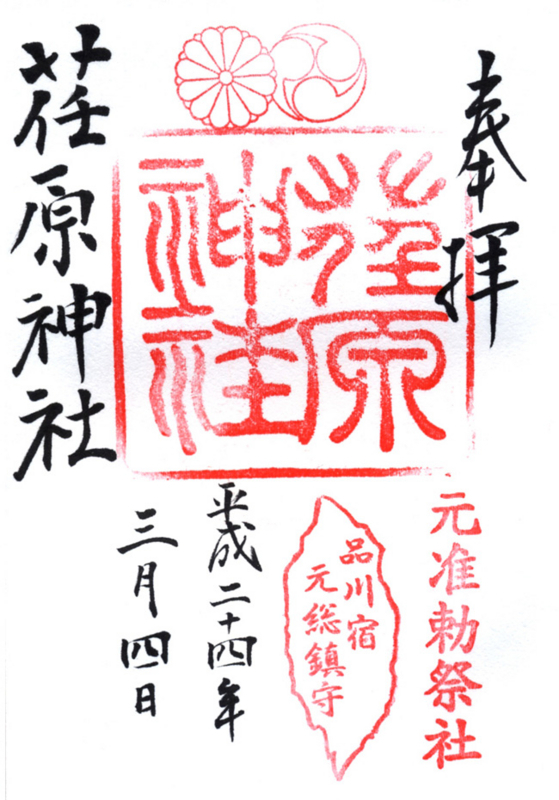 奉拝
元准勅祭社
荏原
神社
品川宿
元総鎮守
平成二十四年
三月四日
荏原神社